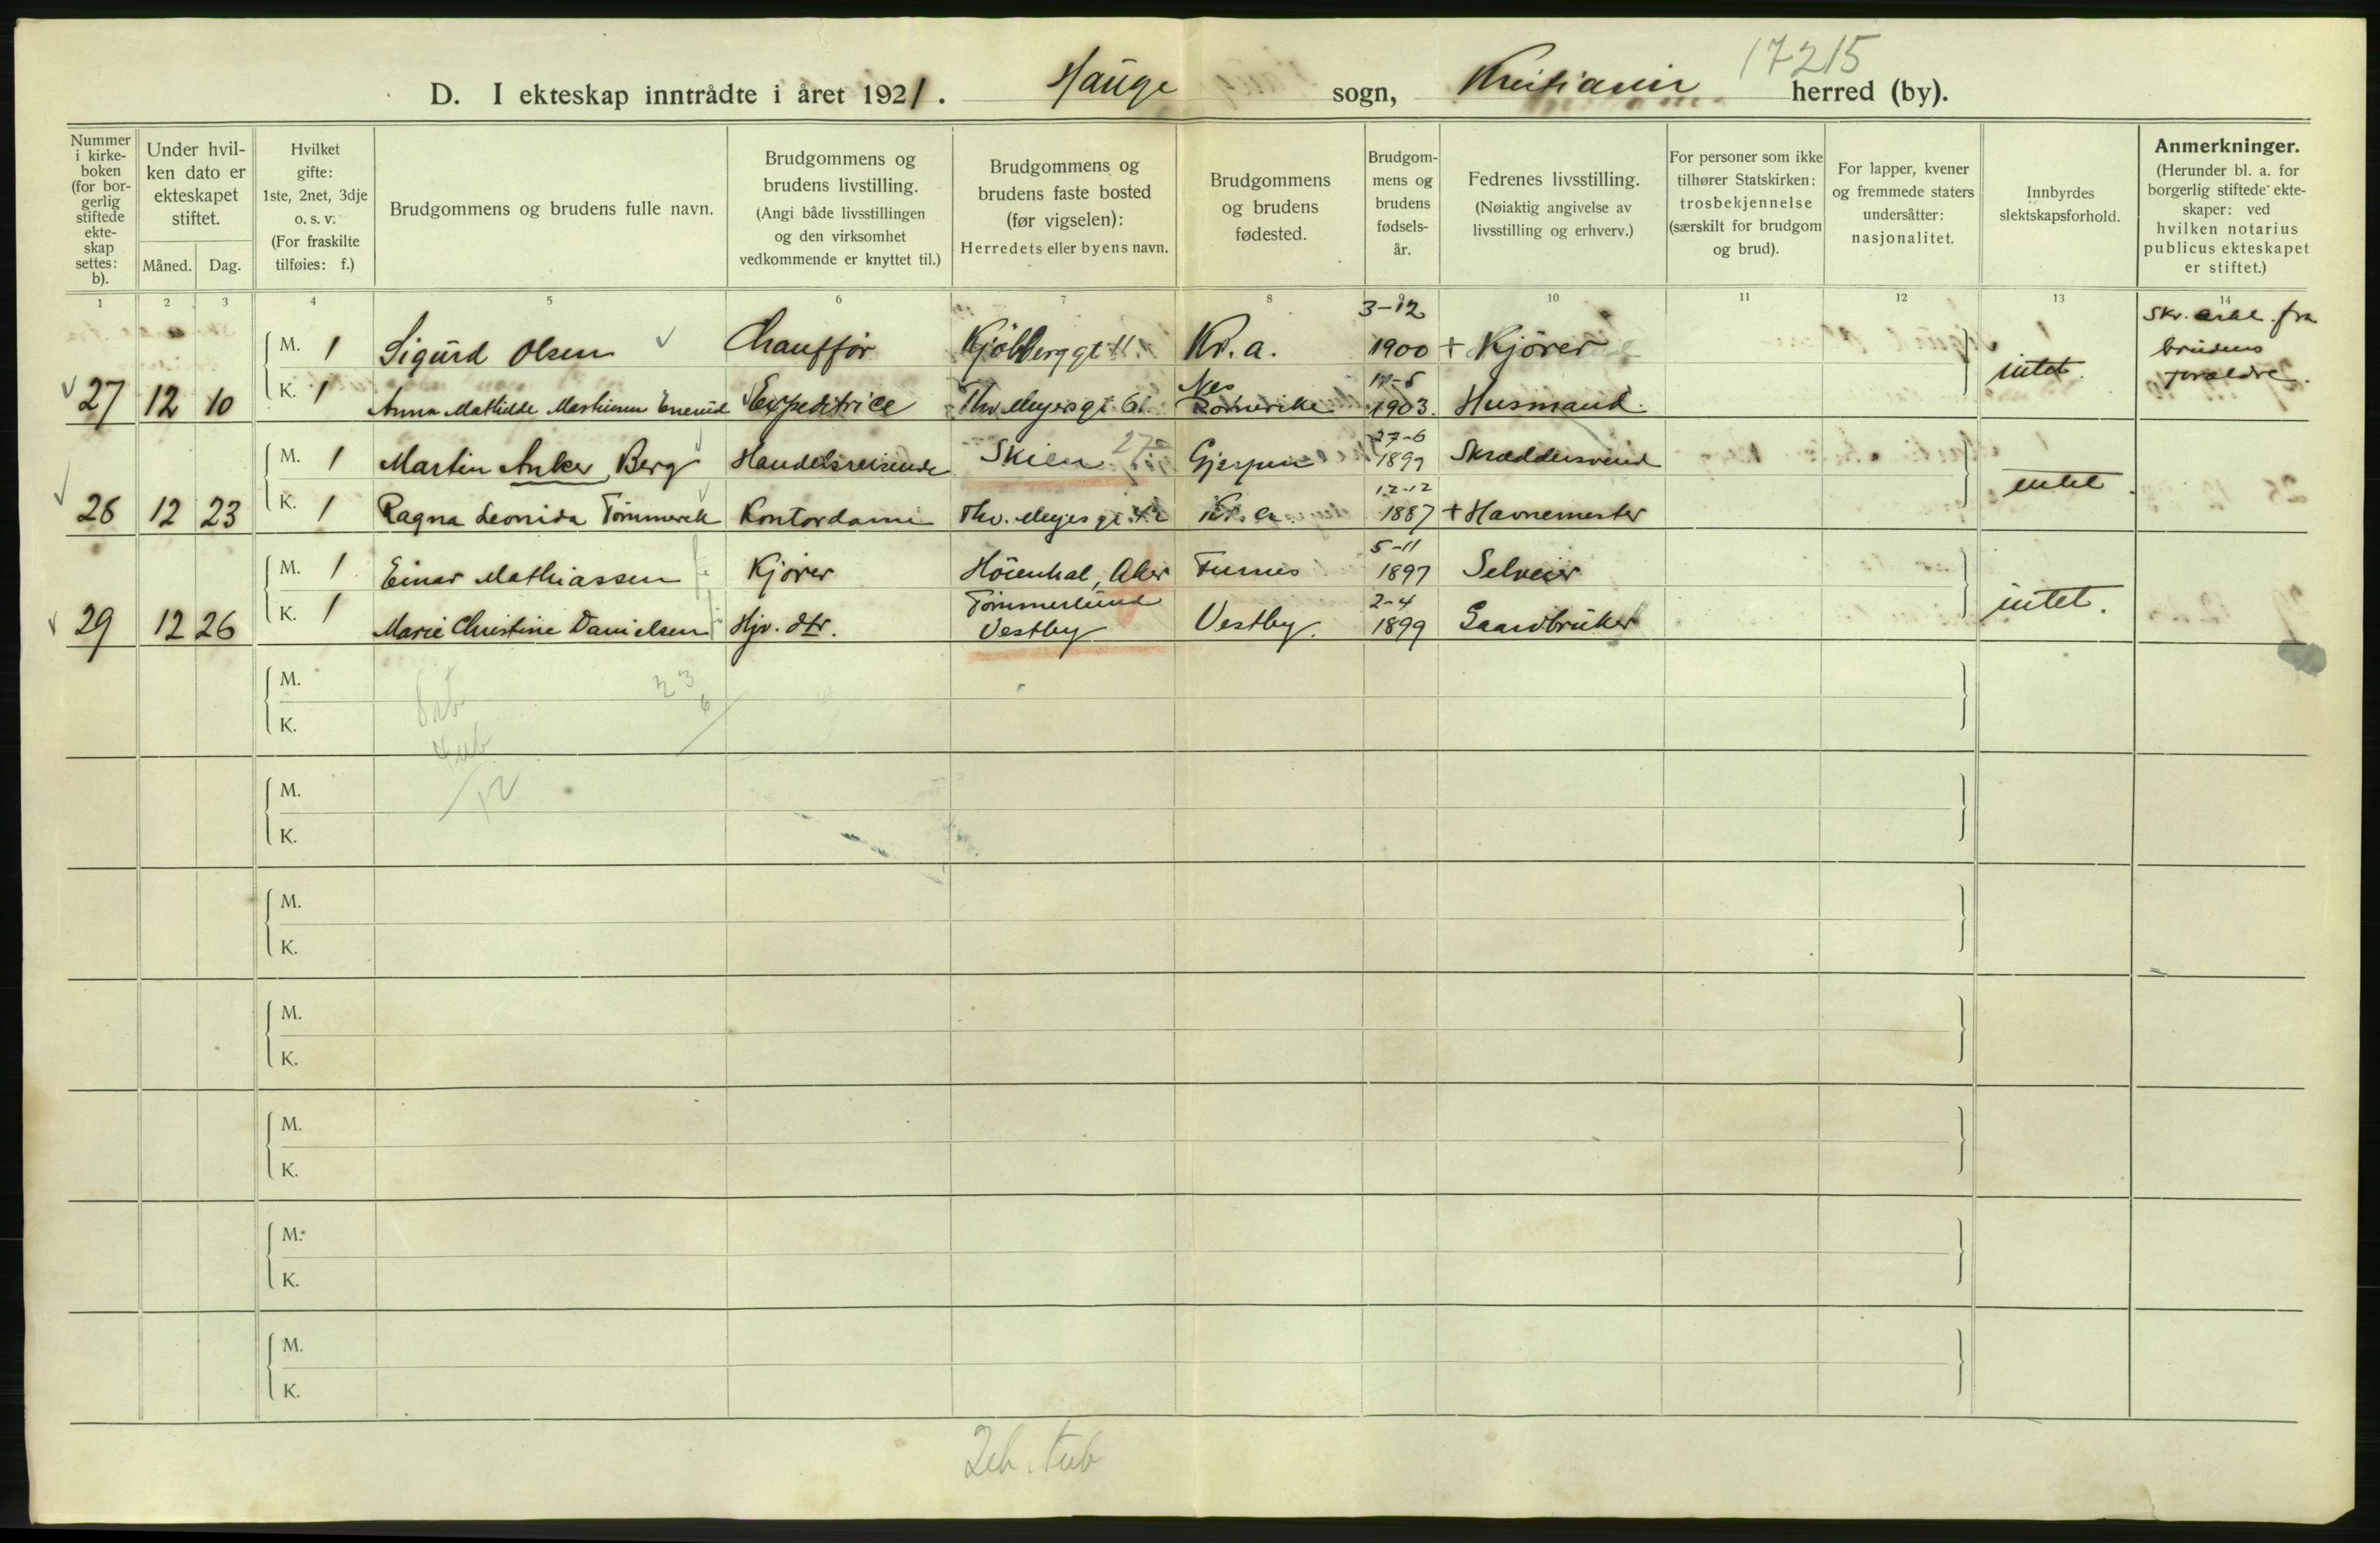 17215
D. I ekteskap inntrådte i året 1921. Hauge sogn, Kristiania herred (by).
Nummer i kirke-boken (for bor-gerlig stiftede ekte-skap settes: b).
Under hvil-ken dato er ekteskapet stiftet.
Måned. Dag.
Hvilket gifte: 1ste, 2net, 3dje o. s. v. (For fraskilte tilføies: f.)
Brudgommens og brudens fulle navn.
Brudgommens og brudens livstilling. (Angi både livsstillingen og den virksomhet vedkommende er knyttet til.)
Brudgommens og brudens faste bosted (før vigselen): Herredets eller byens navn.
Brudgommens og brudens fødested.
Brudgom-mens og brudens fødsels-år.
Fedrenes livsstilling. (Nøiaktig angivelse av livsstilling og erhverv.)
For personer som ikke tilhører Statskirken: trosbekjennelse (særskilt for brudgom og brud).
For lapper, kvener og fremmede staters undersåtter: nasjonalitet.
Innbyrdes slektskapsforhold.
Anmerkninger. (Herunder bl. a. for borgerlig stiftede ekte-skaper: ved hvilken notarius publicus ekteskapet er stiftet.)
1 2 3 4 5 6 7 8 9 10 11 12 13 14
M. 1 Sigurd Olsen Chauffør Kjølberggt 11. Kr.a. 3-12 1900 + Kjører
27 12 10 K. 1 Anna Mathilde Martinsen Enerud Expeditrice Thv. Meyersgt 61. Nes Romerike 1903. Husmand. intet. Skr. erkl. fra brudens forældre.
M. 1 Martin Anker Berg Handelsreisende Skien 27 Gjerpen 27-6 1899 Skræddersvend
28 12 23 K. 1 Ragna Leonida Tømmervik Kontordame Thv. Meyersgt. Kr.a. 12-12 1887 + Havnemester intet.
M. 1 Einar Mathiassen Kjører Høienhal, Aker Furnes 5-11 1897 Selveier
29 12 26 K. 1 Marie Christine Danielsen Hjv. dtr. Tømmerlund Vestby Vestby. 2-4 1899 Gaardbruker intet.
M.
K.
M.
K.
M.
K.
M.
K.
M.
K.
M.
K.
M.
K.